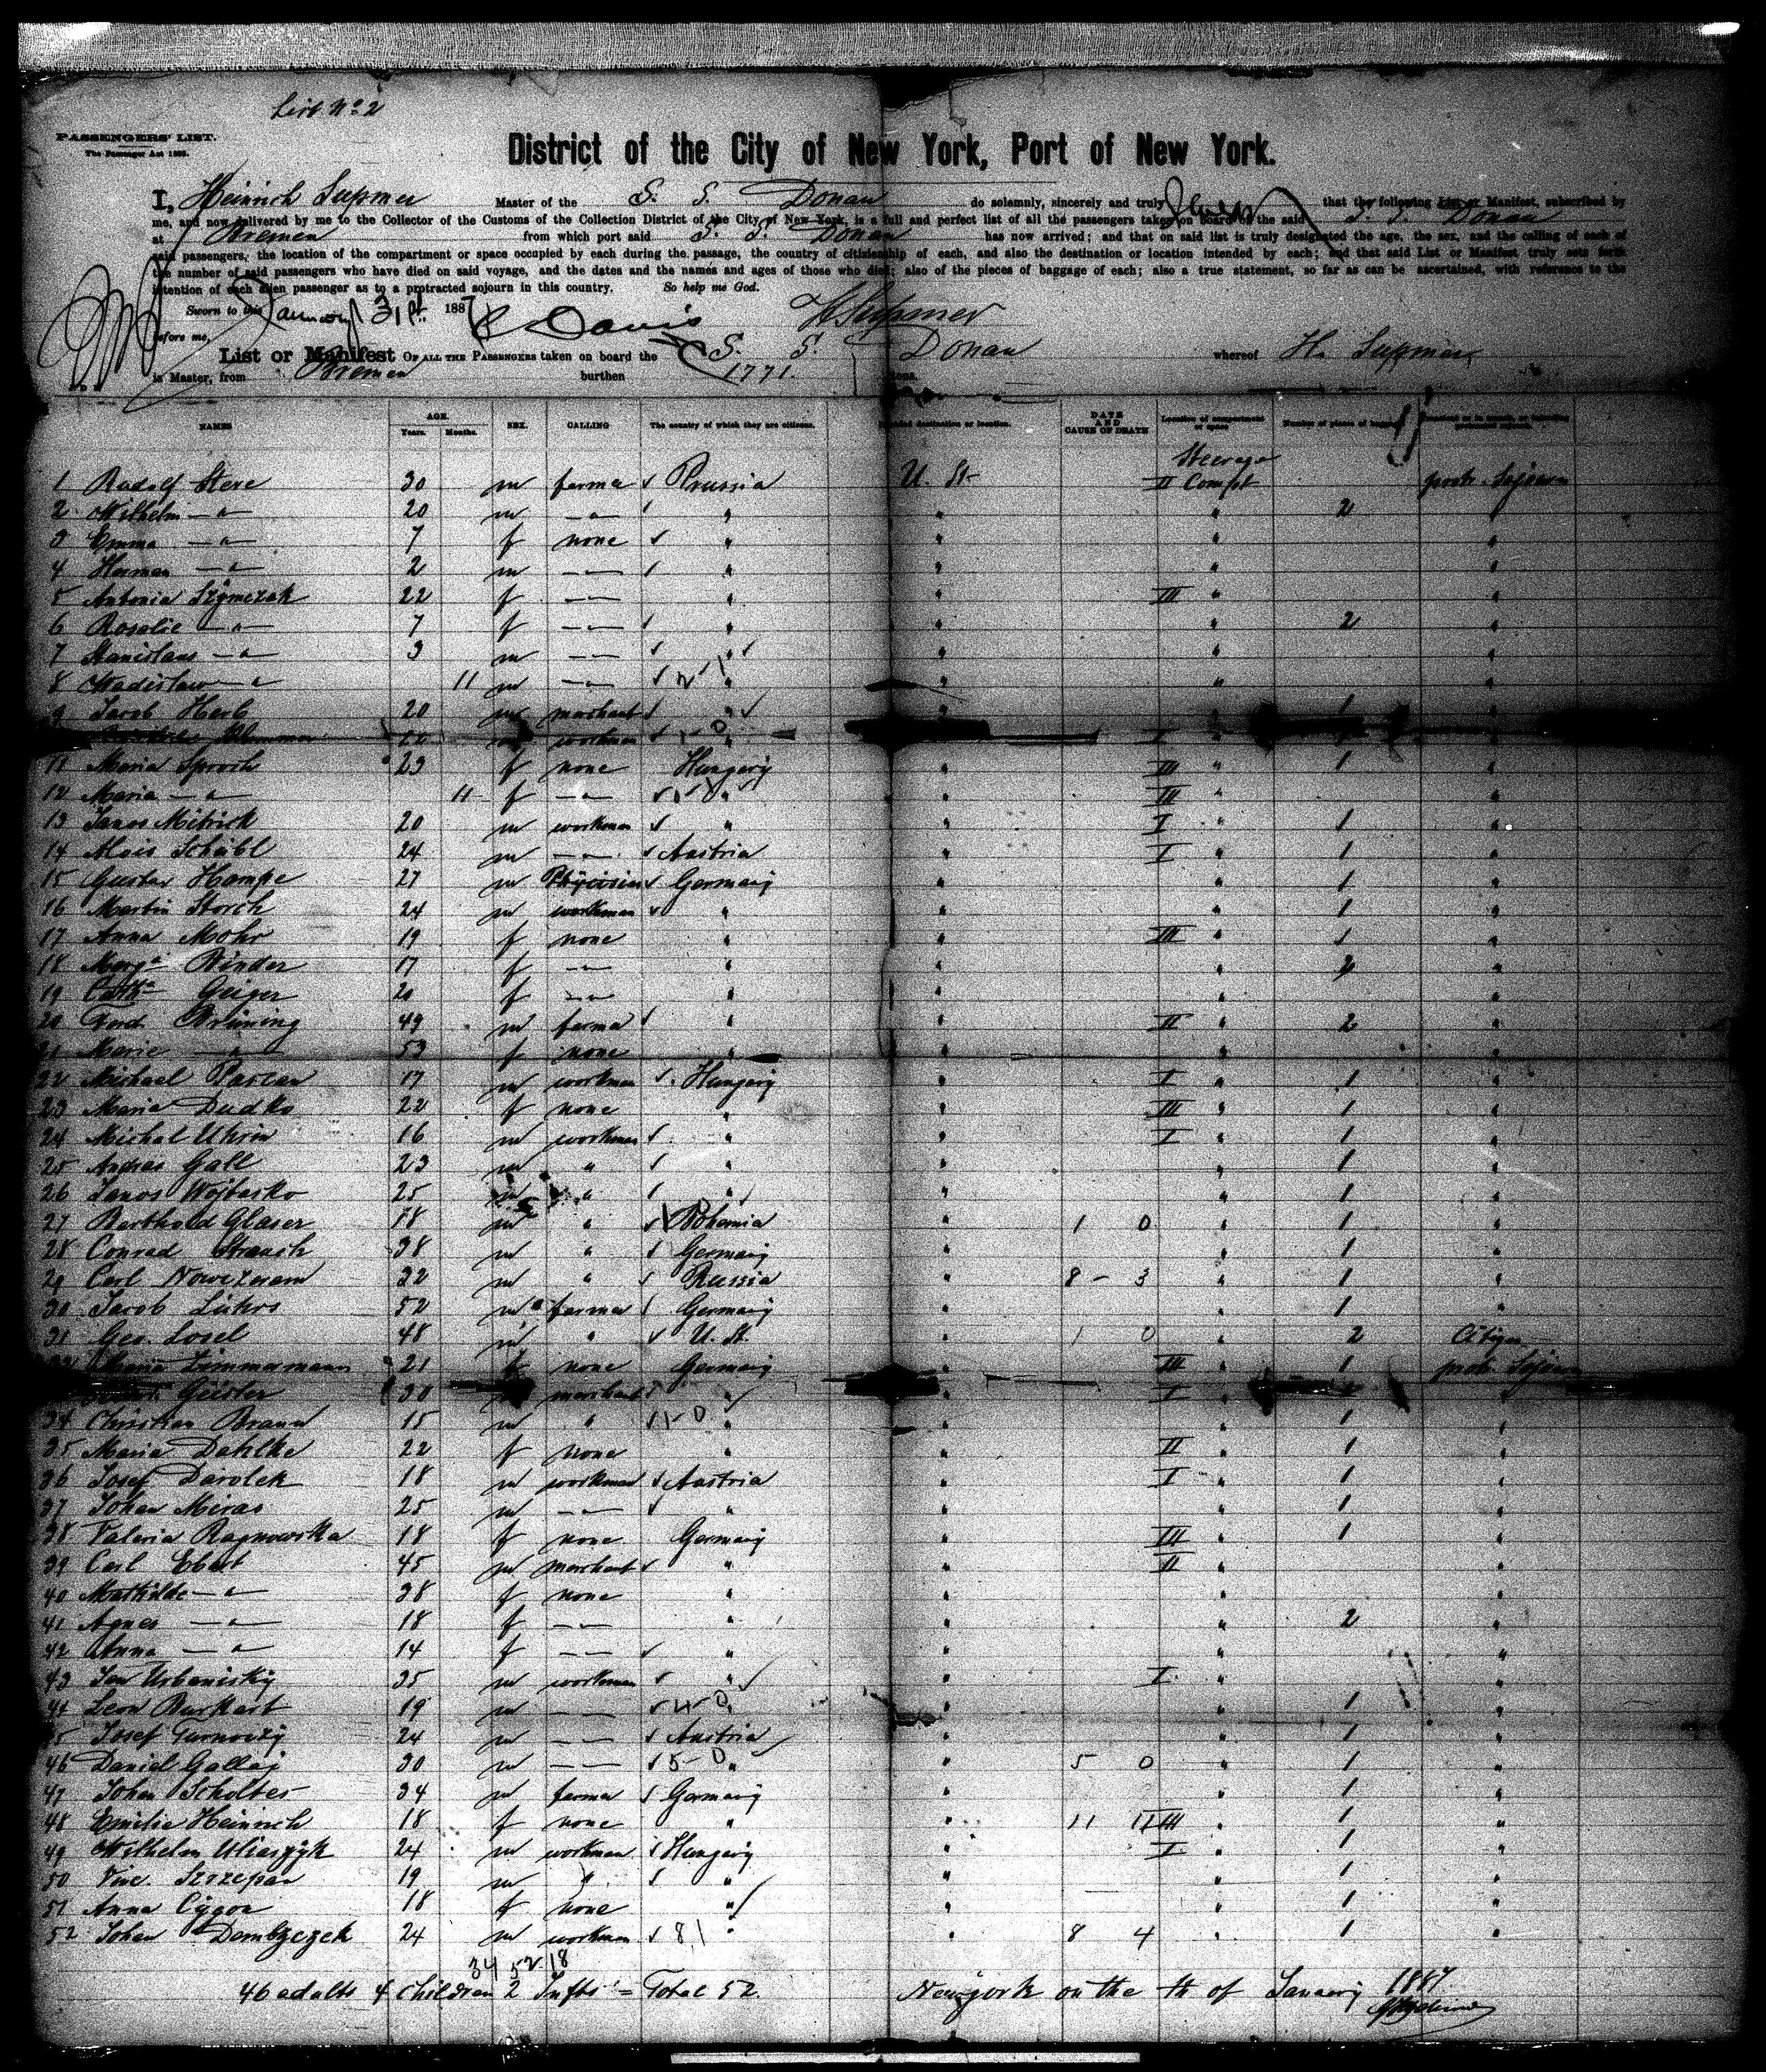 List No. 2
PASSENGERS' LIST.
The Passenger Act 1882.
District of the City of New York, Port of New York.
I, Heinrich Supmer Master of the S. S. Donau do solemnly, sincerely and truly that the following List or Manifest, subscribed by
me, and now delivered by me to the Collector of the Customs of the Collection District of the City of New York, is a full and perfect list of all the passengers taken on board of the said S. S. Donau
at Bremen from which port said S. S. Donau has now arrived; and that on said list is truly designated the age, the sex, and the calling of each of
said passengers, the location of the compartment or space occupied by each during the passage, the country of citizenship of each, and also the destination or location intended by each; and that said List or Manifest truly sets forth
the number of said passengers who have died on said voyage, and the dates and the names and ages of those who died; also of the pieces of baggage of each; also a true statement, so far as can be ascertained, with reference to the
intention of each alien passenger as to a protracted sojourn in this country. So help me God.
Sworn to this January 31st 1887 Davis H Supmer
before me,
List or Manifest OF ALL THE PASSENGERS taken on board the S. S. Donau whereof H. Supmer
is Master, from Bremen burthen 1771. tons.
NAMES AGE. Years. Months. SEX. CALLING The country of which they are citizens. Intended destination or location. DATE AND CAUSE OF DEATH Location of compartment or space Number of pieces of baggage
Steerage
1 Rudolf Stere 30 m farmer Prussia U. St. II Compt protr. Sojourn
2 Wilhelm —"— 20 m —"— " " " 2 "
3 Emma —"— 7 f none " " " "
4 Herman —"— 2 m —"— " " " "
5 Antonia Szymczak 22 f —"— " " III " "
6 Rosalie —"— 7 f —"— " " " 2 "
7 Stanislaus —"— 3 m —"— " " " "
8 Wadislaw —"— 11 m —"— " " " "
9 Jacob Herb 20 m marchant " " 1 "
22 m workman " I "
11 Maria Sproch 23 f none Hungary " III " 1 "
12 Maria —"— 11 f —"— " " III " "
13 Janos Mitrick 20 m workman " " I " 1 "
14 Alois Schübl 24 m —"— Austria " I " 1 "
15 Gustav Hampe 27 m Phycisian Germany " " 1 "
16 Martin Storch 24 m workman " " " 1 "
17 Anna Mohr 19 f none " " III " 1 "
18 Marga Binder 17 f —"— " " " 2 "
19 Cath. Geiger 20 f —"— " " " "
20 Ferd. Brüning 49 m farmer " " II " 2 "
21 Marie —"— 53 f none " " " "
22 Michael Parcan 17 m workman Hungary " I " 1 "
23 Maria Dudko 22 f none " " III " 1 "
24 Michal Uhrin 16 m workman " " I " 1 "
25 Andras Gall 23 m " " " " 1 "
26 Janos Wojtasko 25 m " " " " 1 "
27 Barthold Glaser 18 m " Bohemia " 1 0 " 1 "
28 Conrad Strauch 38 m " Germany " " 1 "
29 Carl 22 m " Russia " 8 - 3 " 1 "
30 Jacob Lührs 52 m farmer Germany " " 1 "
31 Geo. Losel 48 m " U. St. " 1 0 " 2 Citizen
32 Maria Zimmermann 21 f none Germany " III " 1 protr. Sojourn
Geister 30 m marchant " I "
34 Christian Braun 15 m " 1-0 " " " 1 "
35 Maria Dahlke 22 f none " " II " 1 "
36 Josef Darolek 18 m workman Austria " I " 1 "
37 Johan Miras 25 m —"— " " " 1 "
38 Valeria Ragnowska 18 f none Germany " III " 1 "
39 Carl Ebert 45 m marchant " " II " "
40 Mathilde —"— 38 f none " " " "
41 Agnes —"— 18 f —"— " " " 2 "
42 Anna —"— 14 f —"— " " " "
43 Jan Urbanisky 35 m workman " " I " "
44 Leon Burkart 19 m —"— 4-0 " " " 1 "
45 Josef 24 m —"— Austria " " 1 "
46 Daniel Gallaj 30 m —"— 5-0 " " 5 0 " 1 "
47 Johan Scholtes 34 m farmer Germany " " 1 "
48 Emilie Heinrich 18 f none " " 11 11 III " 1 "
49 Wilhelm 24 m workman Hungary " I " 1 "
50 Vinc. Szczepan 19 m " " " " 1 "
51 Anna Cygon 18 f none " " " 1 "
52 Johan Dombzczek 24 m workman 8 1 " " 8 4 " 1 "
34 52 18
46 adults 4 children 2 Infts = Total 52. New york on the th of January 1887